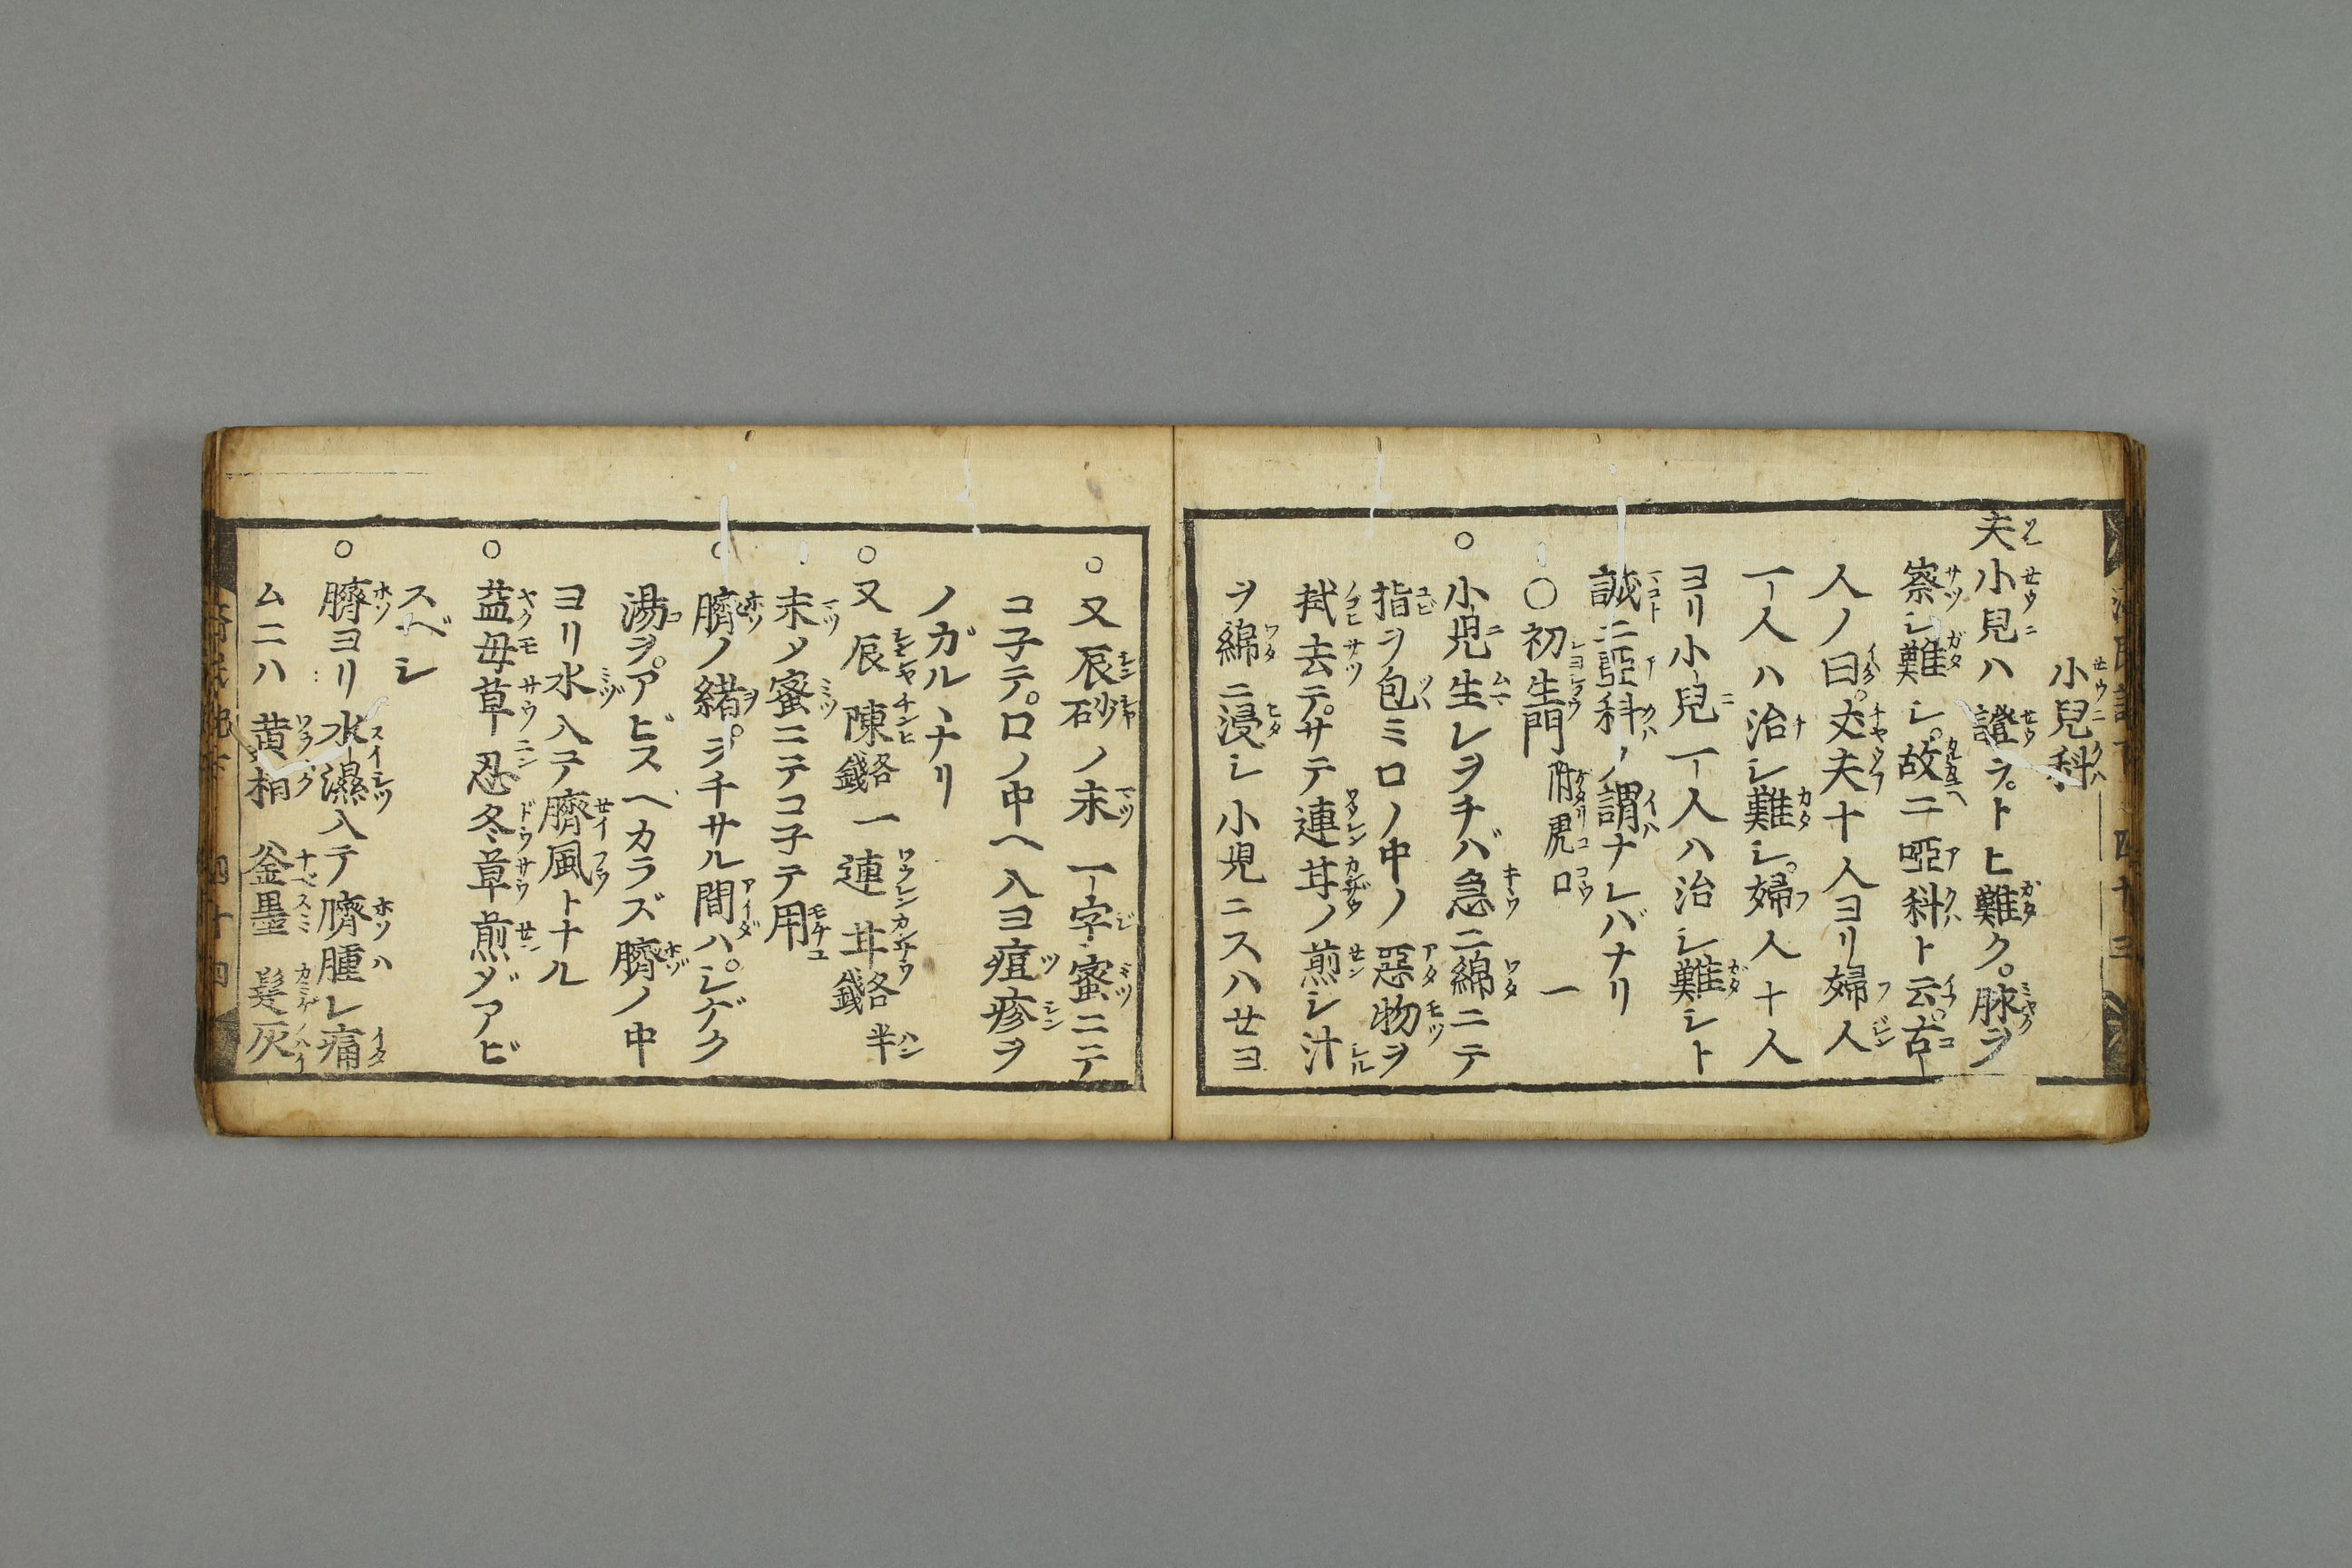 小兒科
夫小兒ハ證ヲ。トヒ難ク。脉ヲ
察シ難シ。故ニ啞科ト云。古ー
人ノ曰。丈夫十人ヨリ婦人
一人ハ治シ難シ。婦人十人
ヨリ小兒一人ハ治シ難シト
誠ニ啞科ノ謂ナレバナリ
〇初生門 附虎口 一
○小児生レヲチバ急ニ綿ニテ
指ヲ包ミ口ノ中ノ惡物ヲ
拭去テ。サテ連芽ノ煎シ汁
ヲ綿ニ浸シ小児ニスハセヨ
○又辰砂ノ末一字蜜ニテ
コ子テ。口ノ中ヘ入ヨ痘疹ヲ
ノガルヽナリ
○又辰 陳各一錢 連 芽各半錢
末メ蜜ニテコ子テ用
○臍ノ緒。ヲチサル間ハ。シゲク
湯ヲ。アビスヘカラズ臍ノ中
ヨリ水入テ臍風トナル
○益母草忍冬草煎ジアビ
スベシ
○臍ヨリ水濕入テ臍腫レ痛
ムニハ 黄栢 釜墨 髪灰
四十四